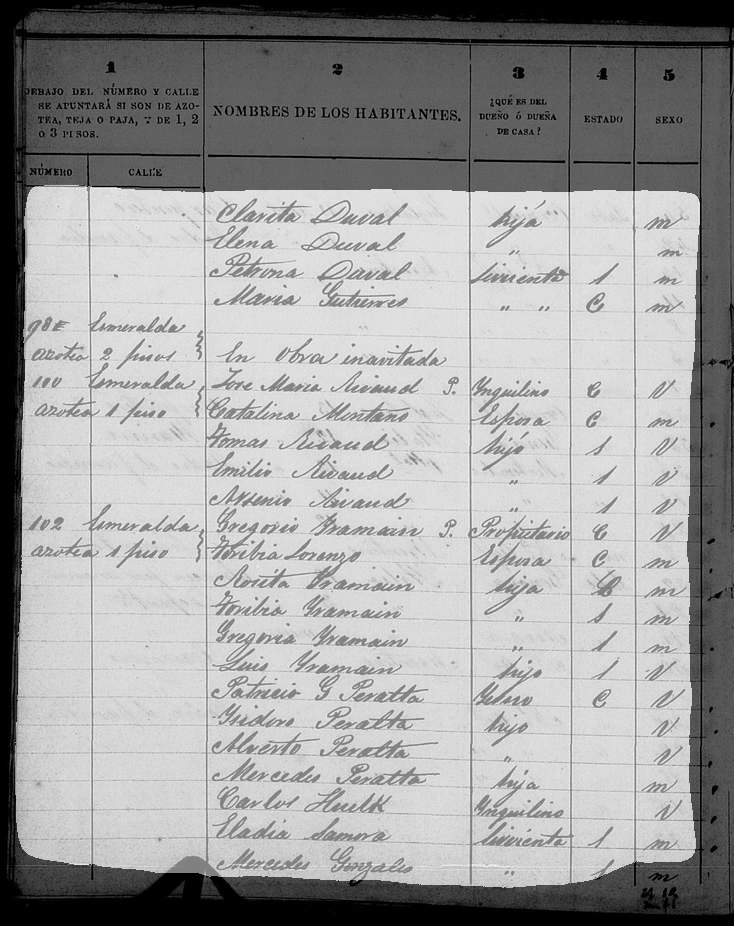 1 2 3 4 5
DEBAJO DEL NÚMERO Y CALLE SE APUNTARÁ SI SON DE AZOTEA, TEJA O PAJA, Y DE 1, 2 O 3 PISOS.
NOMBRES DE LOS HABITANTES.
¿QUÉ ES DEL DUEÑO Ó DUEÑA DE CASA?
ESTADO
SEXO
NÚMERO CALLE
Clarita Duval hija m
Elena Duval " m
Petrona Duval Sirvienta s m
Maria Gutierres " " C m
98E Esmeralda "
azotea 2 pisos En Obra inavitada
100 Esmeralda Jose Maria Rivaud P. Ynquilino C V
azotea 1 piso Catalina Montano Esposa C m
Tomas Rivaud hijo s V
Emilio Rivaud " s V
Arsenio Rivaud " s V
102 Esmeralda Gregorio Yramain P. Propietario C V
azotea 1 piso Toribia Lorenzo Esposa C m
Rosita Yramain hija m
Toribia Yramain " s m
Gregoria Yramain " s m
Luis Yramain hijo s V
Patricio G Peralta Yerno C V
Ysidoro Peralta hijo V
Alverto Peralta " V
Mercedes Peralta hija m
Carlos Huelk Ynquilino V
Eladia Samora Sirvienta s m
Mercedes Gonzales " s m